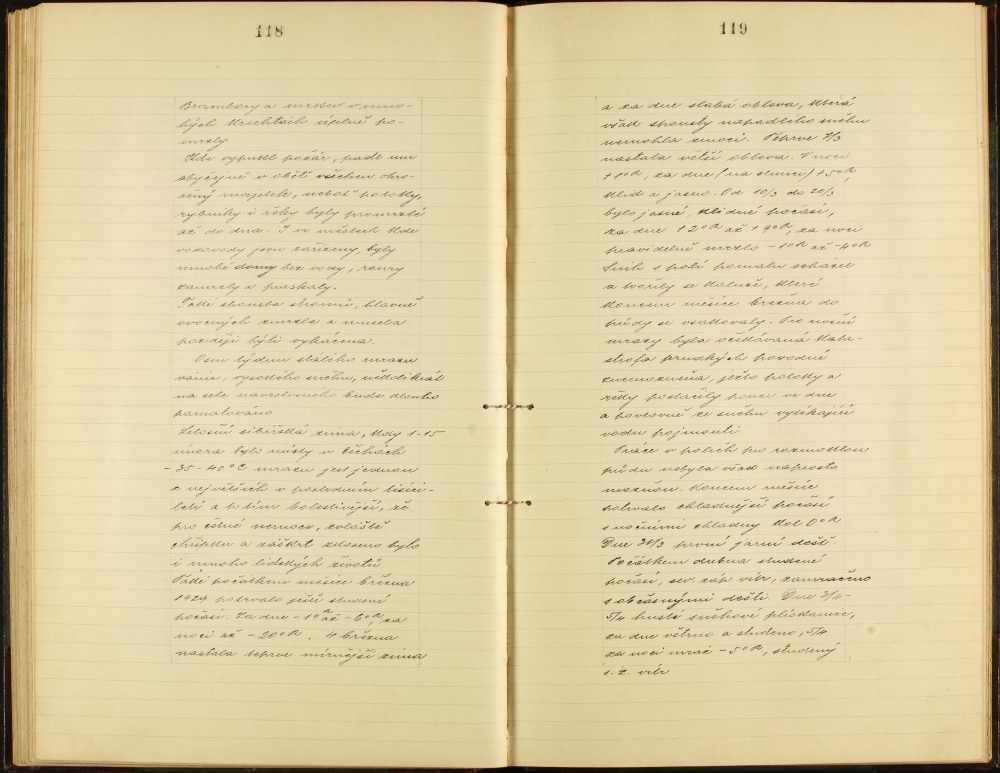 118
Brambory a mrkev v mno-
hých krechtech úplně po-
mrzly.
Kde vypukl požár, padl mu
obyčejně v oběť všechen ohro-
žený majetek, neboť potoky,
rybníky i řeky byly promrzlé
až do dna. I ve městech kde
vodovody jsou zařízeny, byly
mnohé domy bez vody, roury
zamrzly a praskaly.
Také spousta stromů, hlavně
ovocných zmrzla a musela
později býti vykácena.
Osm týdnů stálého mrazu
vánic, vysokého sněhu, několikrát
na sebe navrstveného bude dlouho
pamatováno
Letošní sibiřská zima, kdy 1-15
února bylo místy v Čechách
- 35 - 40° C mrazu jest jednou
z největších v posledním tisíci-
letí a to tím bolestivější, že
pro četné nemoce, zvláště
chřipku a záškrt zkoseno bylo
i mnoho lidských životů
Také počátkem měsíce března
1929 potrvalo ještě studené
počasí. Za dne - 1°R až - 6°R, za
noci až - 20°R. 4 března
nastala teprve mírnější zima
119
a za dne slabá obleva, která
však spousty napadlého sněhu
nemohla zmoci. Teprve 7/3
nastala větší obleva. V noci
+ 1°R, za dne (na slunci) + 5°R,
klid a jasno. Od 10/3 do 20/3
bylo jasné, klidné počasí,
za dne + 2°R až + 9°R, za noci
pravidelně mrzlo - 1°R až - 4°R
Sníh s polí pomalu scházel
a tvořily se kaluže, které
koncem měsíce března do
půdy se vsakovaly. Pro noční
mrazy byla očekávaná kata-
strofa prudkých povodní
znemožněna, ježto potoky a
řeky postačily pouze ve dne
a povlovně ze sněhu vytékající
vodu pojmouti
Práce v polích pro rozmoklou
půdu nebyla však naprosto
možnou. Koncem měsíce
potrvalo chladnější počasí
s nočními chladny kol 0°R
Dne 31/3 první jarní déšť.
Počátkem dubna studené
počasí, sev. záp. vítr, zamračeno
s občasnými dešti Dne 3/4-
5/4 husté sněhové plískanice,
za dne větrno a studeno, 5/4
za noci mráz - 5°R, studený
s. z. vítr